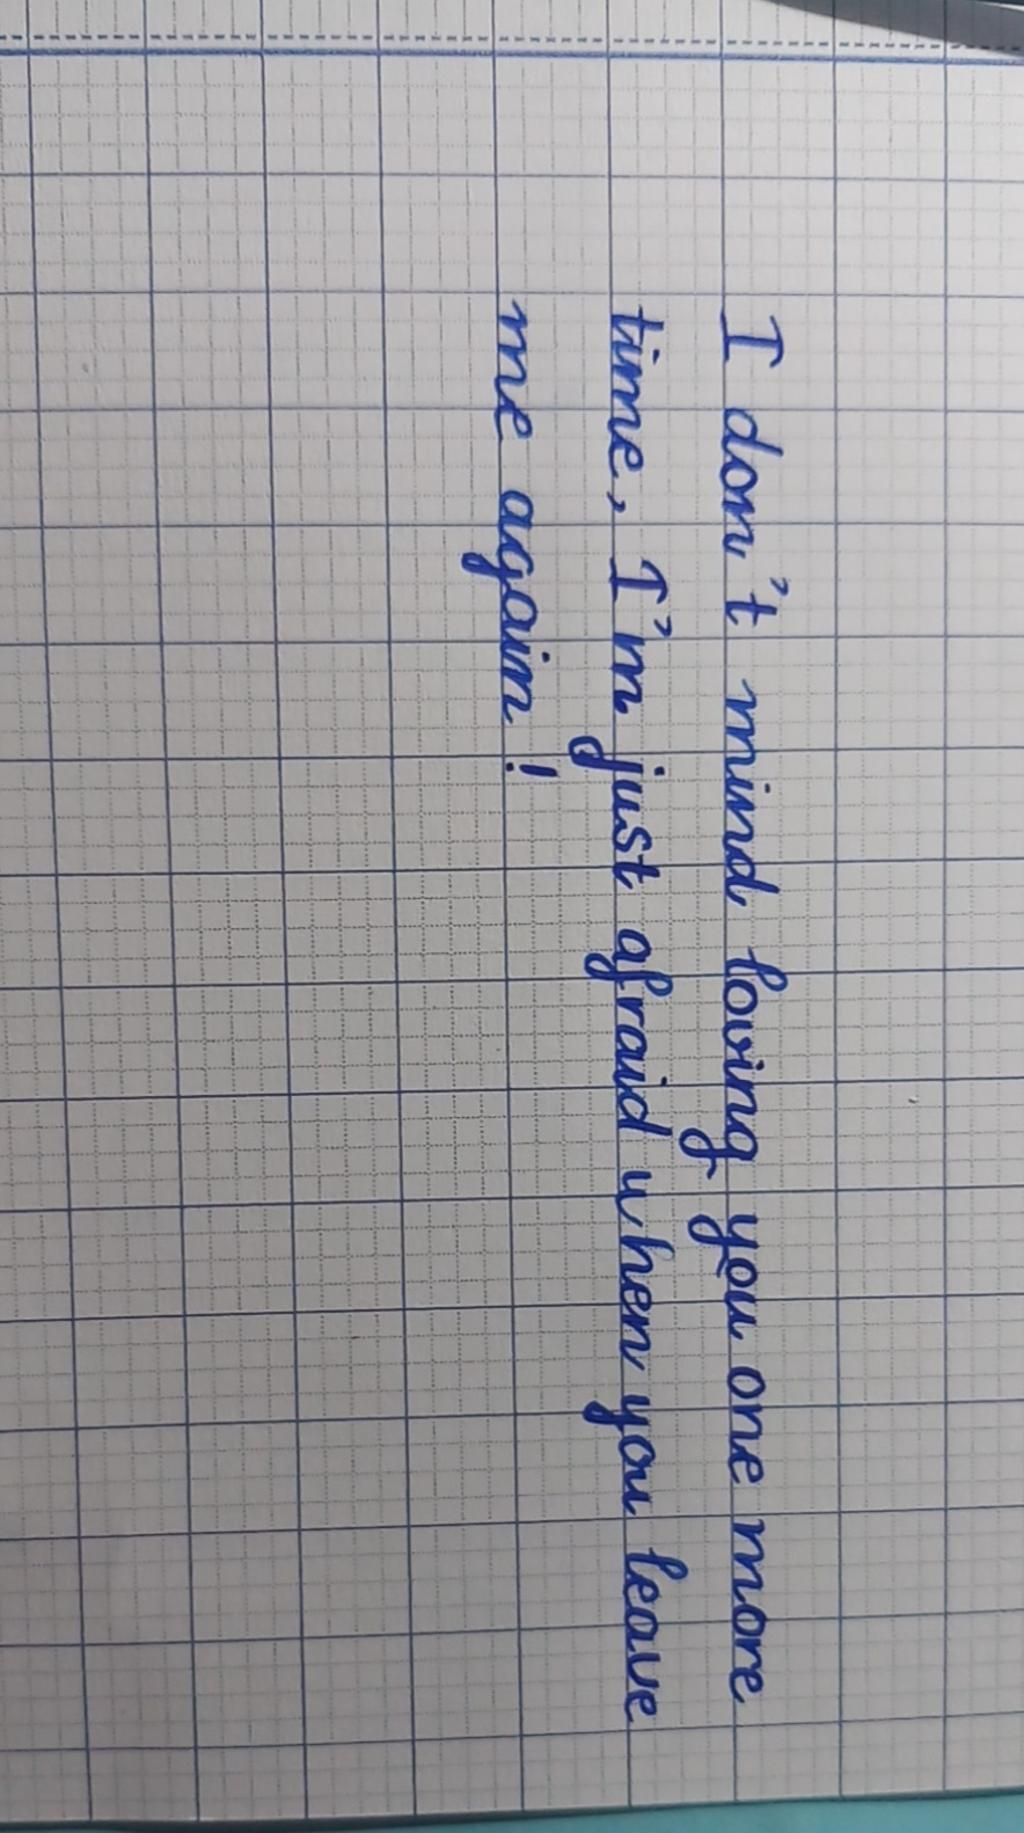 I don't mind loving you one more
time, I'm just afraid when you leave
me again !